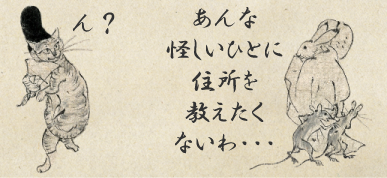 ん？
あんな
怪しいひとに
住所を
教えたく
ないわ・・・